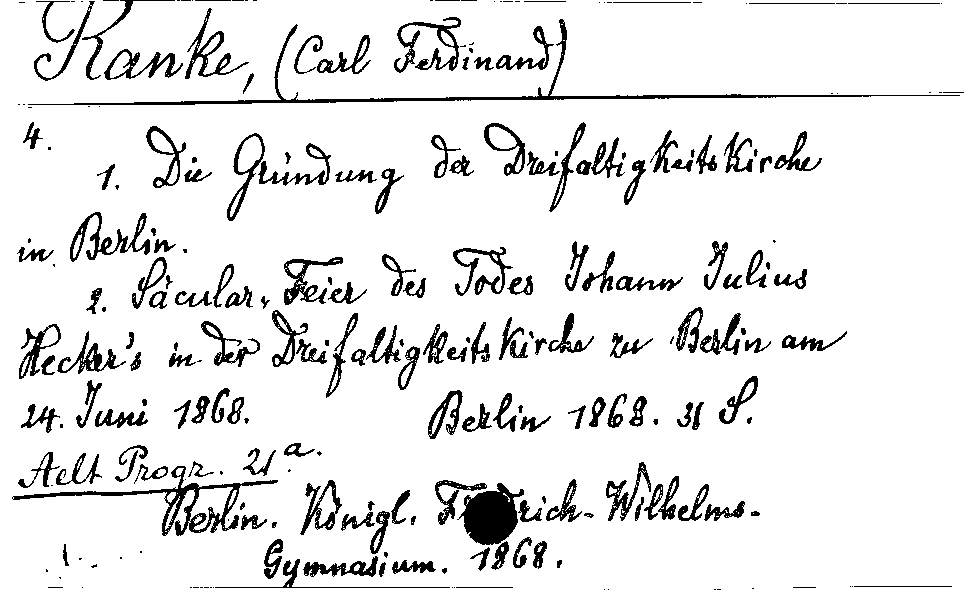 Ranke, (Carl Ferdinand)
4.
1. Die Gründung der Dreifaltigkeitskirche
in Berlin.
2. Säcular-Feier des Todes Johann Julius
Hecker's in der Dreifaltigkeitskirche zu Berlin am
24. Juni 1868. Berlin 1868. 31 S.
Aelt Progr. 21a.
Berlin. Königl. Friedrich-Wilhelms-
Gymnasium. 1868.